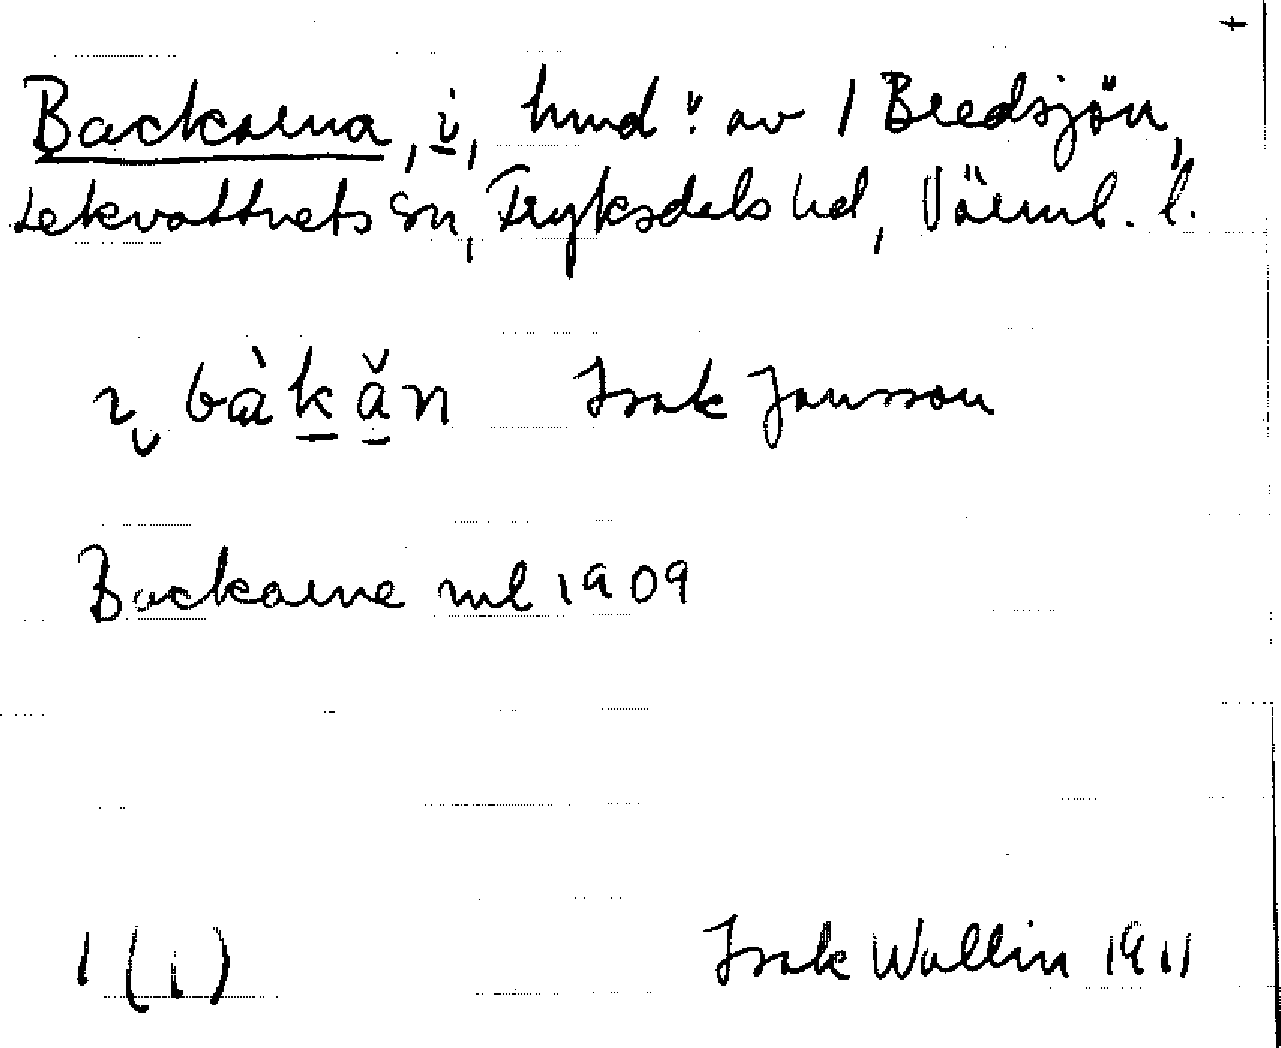 +
Backarna, i, hmd :" av 1 Bredsjön,
Lekvattnets sn, Fryksdals hd, Värml. l.
ı bàkăn Isak Jansson
Backarne ml 1909
1 (1) Isak Wallin 1911